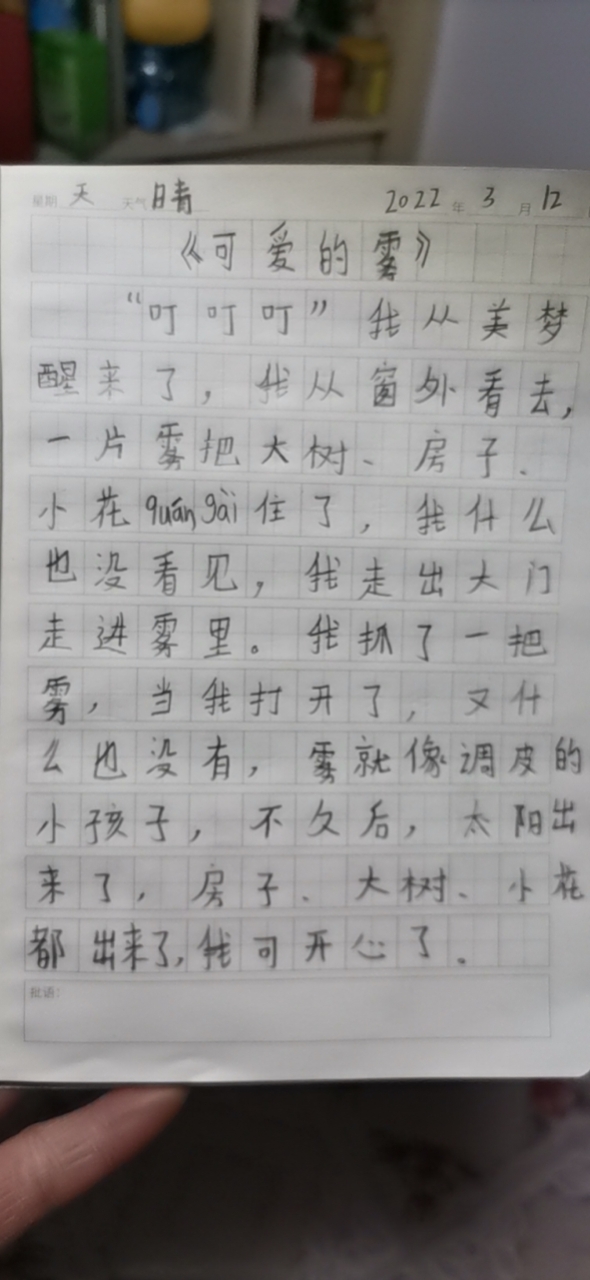 星期 天 天气 晴 2022 年 3 月 12
《可爱的雾》
“叮叮叮”我从美梦
醒来了，我从窗外看去，
一片雾把大树、房子、
小花quán gài住了，我什么
也没看见，我走出大门
走进雾里。我抓了一把
雾，当我打开了，又什
么也没有，雾就像调皮的
小孩子，不久后，太阳出
来了，房子、大树、小花
都出来了，我可开心了。
批语：